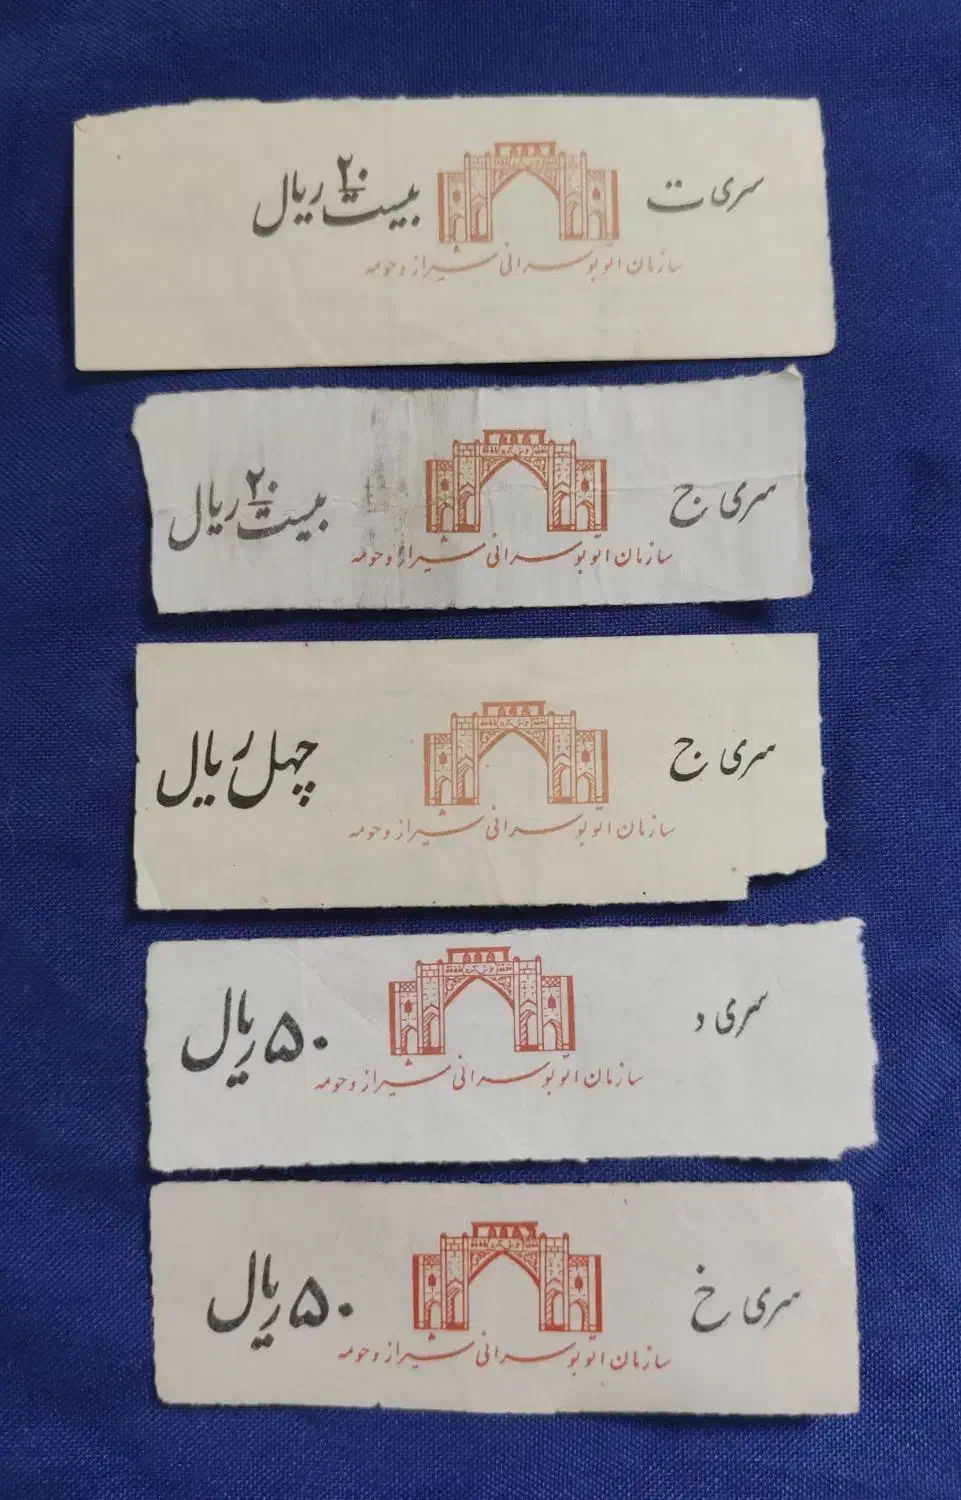 سری ت
۲۰
بیست ریال
سازمان اتوبوسرانی شیراز و حومه
سری ج
۲۰
بیست ریال
سازمان اتوبوسرانی شیراز و حومه
سری ج
چهل ریال
سازمان اتوبوسرانی شیراز و حومه
سری د
۵۰ ریال
سازمان اتوبوسرانی شیراز و حومه
سری خ
۵۰ ریال
سازمان اتوبوسرانی شیراز و حومه